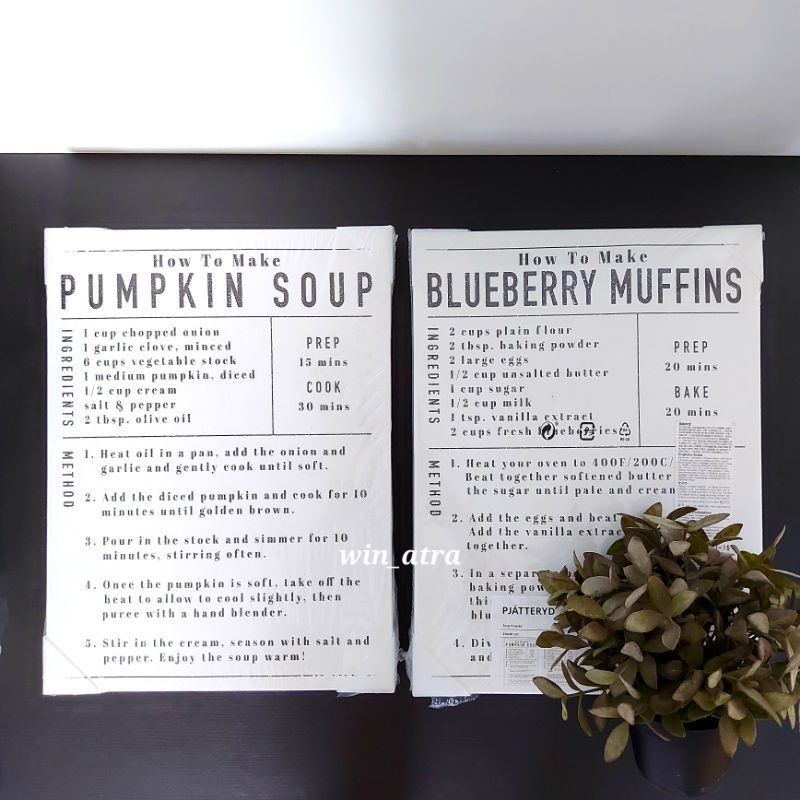 How To Make
PUMPKIN SOUP
INGREDIENTS
1 cup chopped onion
1 garlic clove, minced
6 cups vegetable stock
1 medium pumpkin, diced
1/2 cup cream
salt & pepper
2 tbsp. olive oil
PREP
15 mins
COOK
30 mins
METHOD
1. Heat oil in a pan, add the onion and
garlic and gently cook until soft.
2. Add the diced pumpkin and cook for 10
minutes until golden brown.
3. Pour in the stock and simmer for 10
minutes, stirring often.
4. Once the pumpkin is soft, take off the
heat to allow to cool slightly, then
puree with a hand blender.
5. Stir in the cream, season with salt and
pepper. Enjoy the soup warm!
How To Make
BLUEBERRY MUFFINS
INGREDIENTS
2 cups plain flour
2 tbsp. baking powder
2 large eggs
1/2 cup unsalted butter
1 cup sugar
1/2 cup milk
1 tsp. vanilla extract
2 cups fresh blueberries
PREP
20 mins
BAKE
20 mins
METHOD
1. Heat your oven to 400F/200C/
Beat together softened butter
the sugar until pale and cream
2. Add the eggs and beat
Add the vanilla extrac
together.
3. In a separ
baking pow
thi
blu
4. Div
and
PJÄTTERYD
win_atra